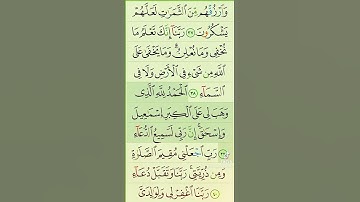 وَٱرْزُقْهُم مِّنَ ٱلثَّمَرَٰتِ لَعَلَّهُمْ
يَشْكُرُونَ ٣٧ رَبَّنَآ إِنَّكَ تَعْلَمُ مَا
نُخْفِى وَمَا نُعْلِنُ ۗ وَمَا يَخْفَىٰ عَلَى
ٱللَّهِ مِن شَىْءٍ فِى ٱلْأَرْضِ وَلَا فِى
ٱلسَّمَآءِ ٣٨ ٱلْحَمْدُ لِلَّهِ ٱلَّذِى
وَهَبَ لِى عَلَى ٱلْكِبَرِ إِسْمَٰعِيلَ
وَإِسْحَٰقَ ۚ إِنَّ رَبِّى لَسَمِيعُ ٱلدُّعَآءِ
٣٩ رَبِّ ٱجْعَلْنِى مُقِيمَ ٱلصَّلَوٰةِ
وَمِن ذُرِّيَّتِى ۚ رَبَّنَا وَتَقَبَّلْ دُعَآءِ
٤٠ رَبَّنَا ٱغْفِرْ لِى وَلِوَٰلِدَىَّ